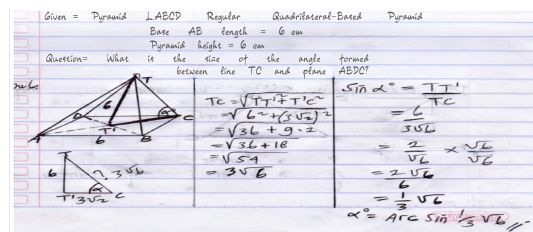 Given = Pyramid LABCD Regular Quadrilateral-Based Pyramid
Base AB length = 6 cm
Pyramid height = 6 cm
Question= What is the size of the angle formed
between line TC and plane ABDC?
T
6
D
α
C
T'
A
6
B
T
6
? 3√6
α
T' 3√2 C
TC = √TT'² + T'C²
= √6² + (3√2)²
= √36 + 9·2
= √36 + 18
= √54
= 3√6
Sin α° = TT' / TC
= 6 / 3√6
= 2 / √6 × √6 / √6
= 2√6 / 6
= 1/3 √6
α° = Arc Sin 1/3 √6 //